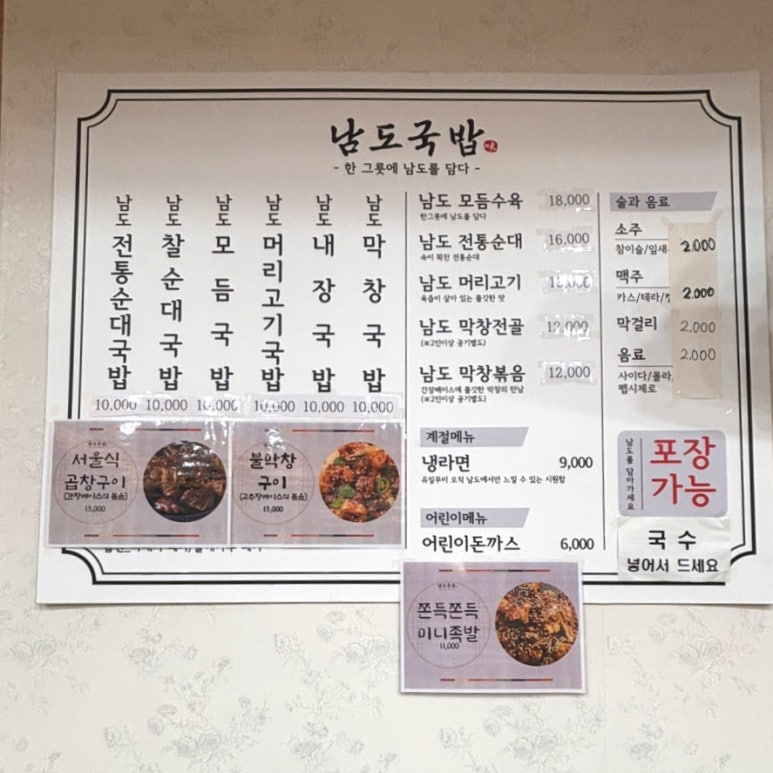 남도국밥
- 한 그릇에 남도를 담다 -
남도 전통순대국밥 10,000
남도 찰순대국밥 10,000
남도 모듬국밥 10,000
남도 머리고기국밥 10,000
남도 내장국밥 10,000
남도 막창국밥 10,000
서울식
곱창구이
(간장베이스의 볶음)
13,000
불막창
구이
(고추장베이스의 볶음)
13,000
남도 모듬수육 18,000
한그릇에 남도를 담다
남도 전통순대 16,000
속이 꽉찬 전통순대
남도 머리고기
육즙이 살아 있는 쫄깃한 맛
남도 막창전골 12,000
(※2인이상 공기별도)
남도 막창볶음 12,000
간장베이스에 쫄깃한 막창의 만남
(※2인이상 공기별도)
계절메뉴
냉라면 9,000
유일무이 오직 남도에서만 느낄 수 있는 시원함
어린이메뉴
어린이돈까스 6,000
쫀득쫀득
미니족발
11,000
술과 음료
소주 2,000
참이슬/잎새
맥주 2,000
카스/테라/
막걸리 2,000
음료 2,000
사이다/콜라
펩시제로
남도를 담아가세요
포장
가능
국수
넣어서 드세요